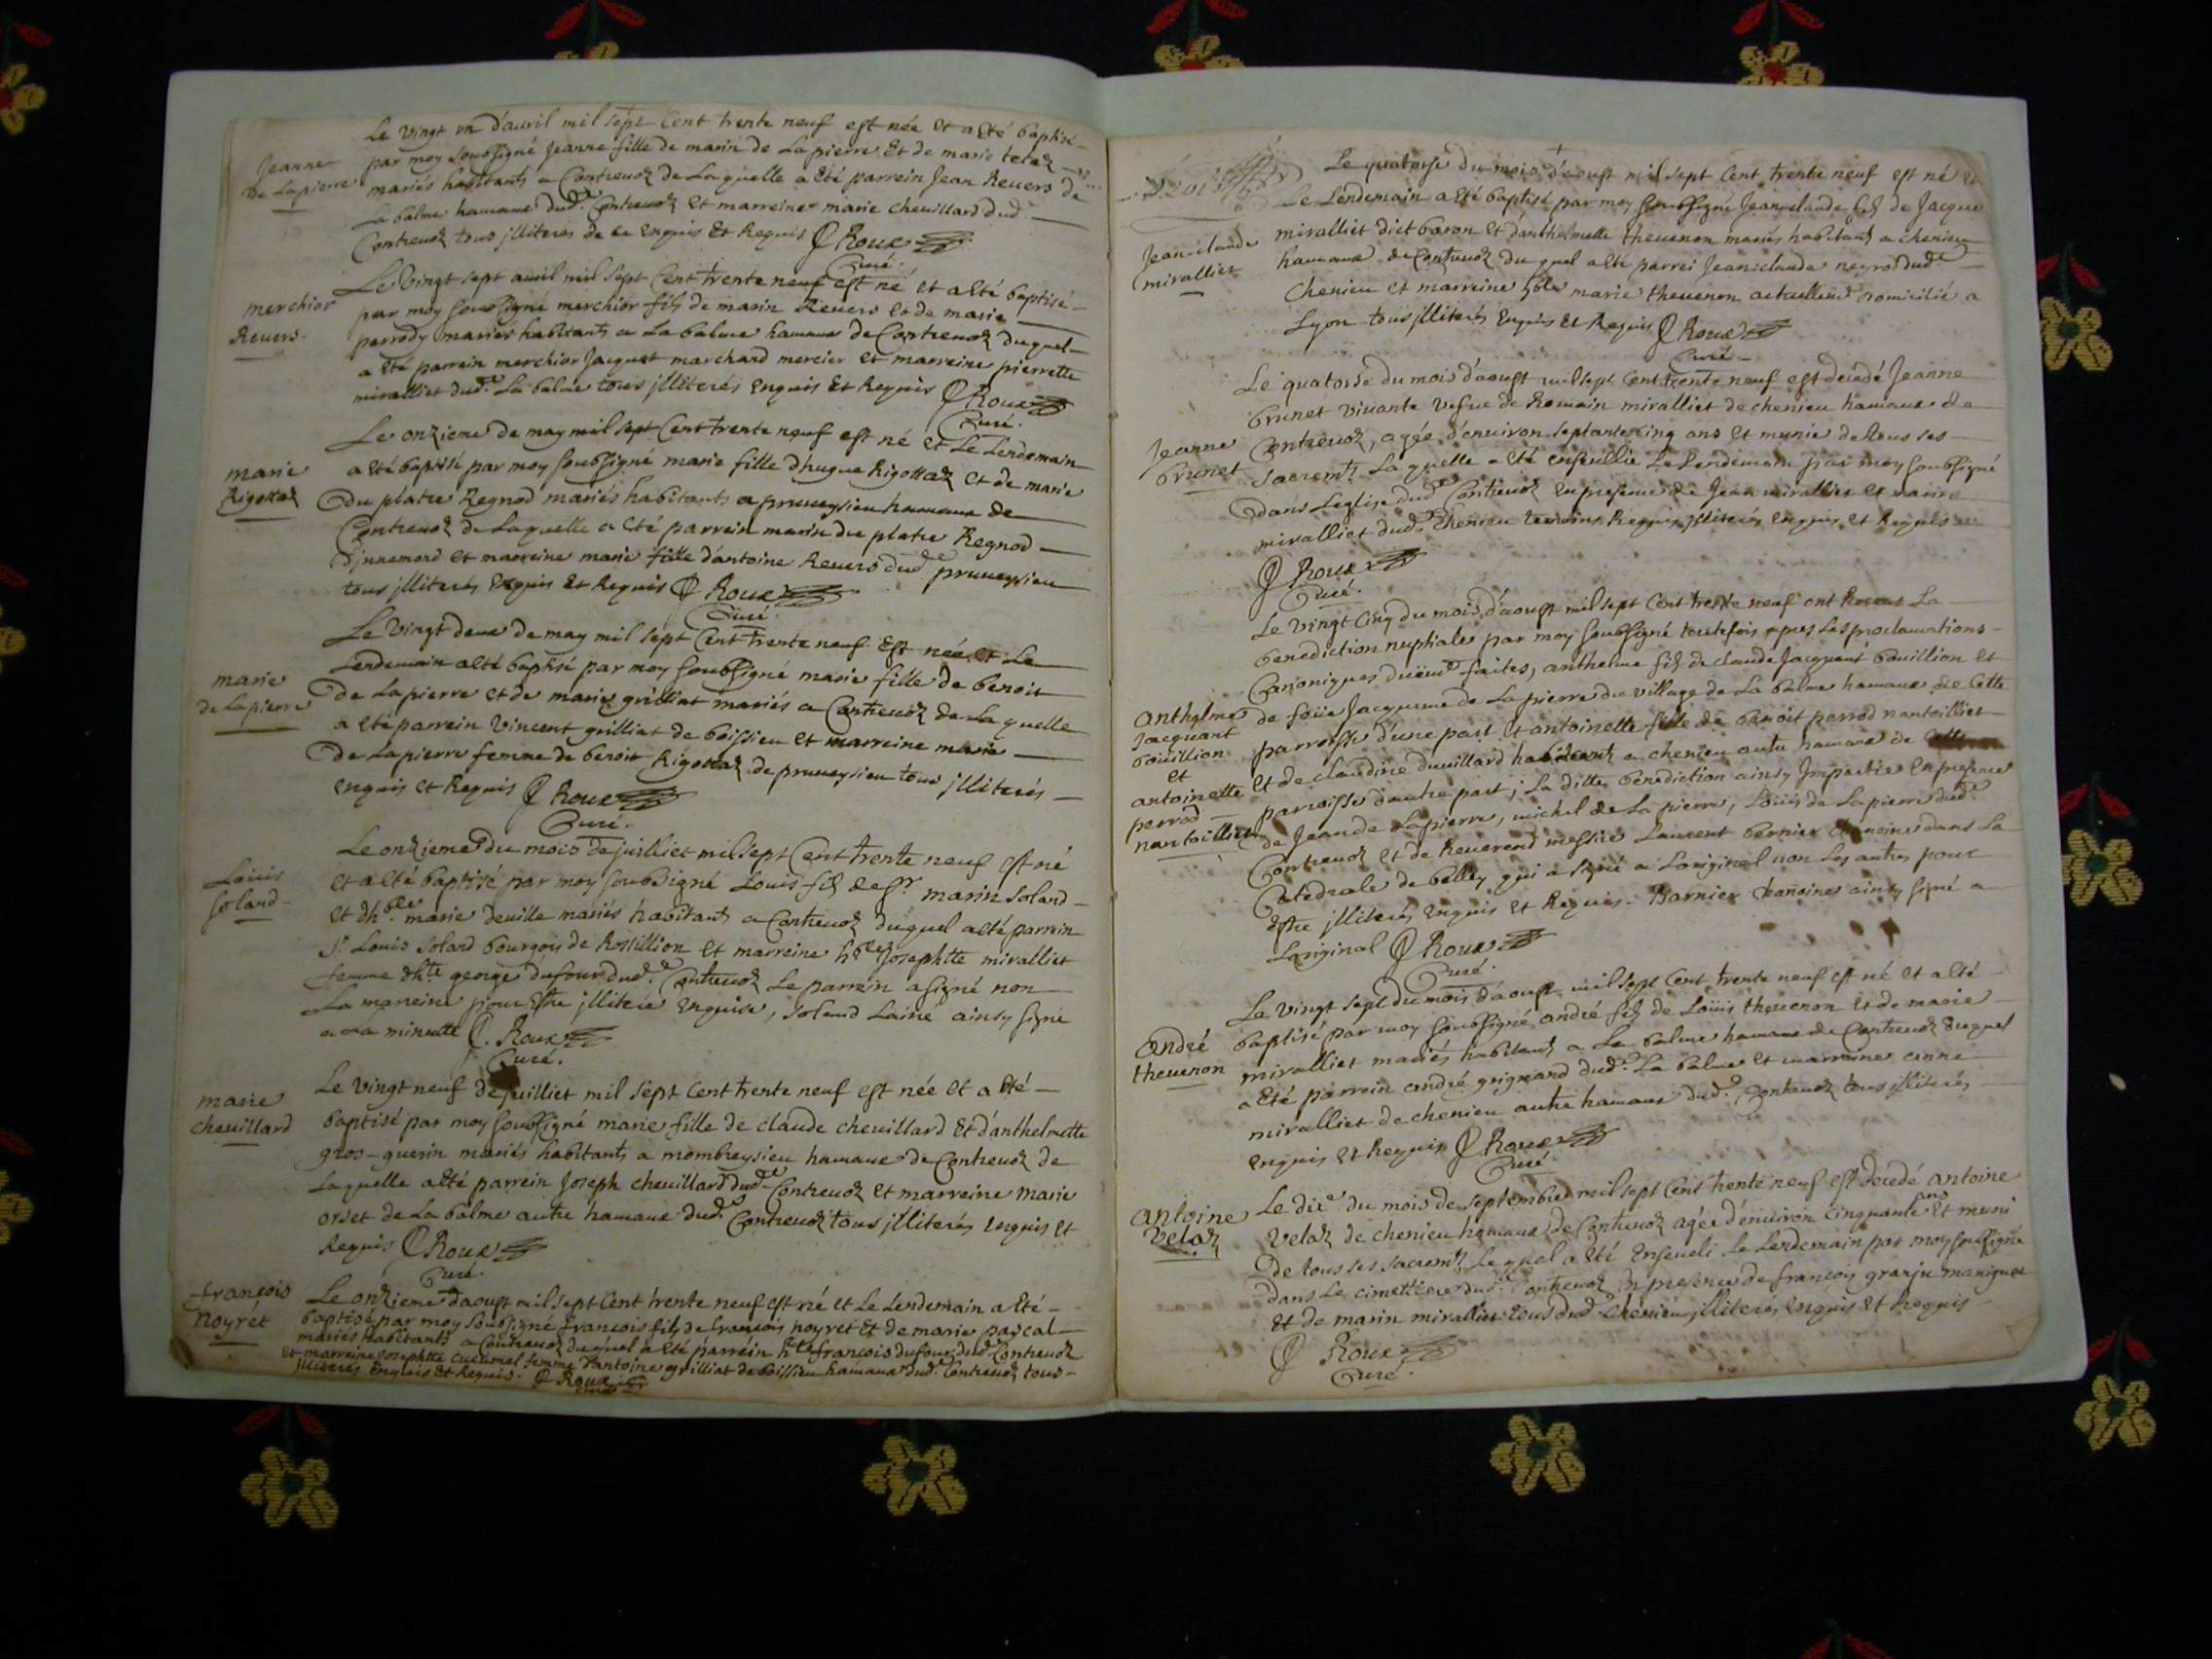 Le vingt un d'auril mil sept Cent trente neuf est née et a été baptisé
Jeanne De Lapierre
par moy soubsigné Jeanne fille de marin de Lapierre Et de marie
mariés habitants a Contreuoz de Laquelle a Eté parrein Jean Reuers de
La balme hamaux dud.e Contreuoz et marreine marie cheuillard dud.e
Contreuoz tous jlliterés de ce Enquis Et Requis Roux
Curé.
merchior Reuers
Le Vingt sept auril mil sept Cent trente neuf est né et a été baptisé
par moy soubsigné merchior fils de marin Reuers et de marie
perrody mariés habitants a La balme hamaux de Contreuoz duquel
a Eté parrein merchior Jacquet marchand mercier et marreine pierrette
miralliet dud.e La balme tous jlliterés enquis Et Requis Roux
Curé.
marie Rigottaz
Le onzieme de may mil sept Cent trente neuf est né et Le Lendemain
a été baptisé par moy soubsigné marie fille d'hugue Rigottaz et de marie
du platre Regnod mariés habitants a pruueysieu hamaux de
Contreuoz de Laquelle a été parrein marin du platre Regnod
d'jnnemond et marreine marie fille d'antoine Reuers dud.e pruueysieu
tous jlliterés Enquis Et Requis Roux
Curé
marie de Lapierre
Le Vingt deux de may mil sept Cent trente neuf Est née et Le
Lendemain a été baptisé par moy soubsigné marie fille de benoit
de Lapierre et de marie grilliat mariés a Contreuoz de Laquelle
a été parrein Vincent grilliat de boissieu et marreine marie
de Lapierre femme de benoit Rigottaz de pruueysieu tous jlliterés
enquis et Requis Roux
Curé.
Loüis Soland
Le onzieme du mois de juilliet mil sept Cent trente neuf est né
et a été baptisé par moy soubsigné Louis fils de Sr. marin Soland
et d'h.ble marie deuille mariés habitants a Contreuoz duquel a été parrein
Sr. Louis Soland bourgois de Rossillion et marreine h.ble Josephtte miralliet
femme d'h.te george dufour dud.e Contreuoz Le parrein a signé non
La marreine pour Estre jlliterée enquise, Soland Lainé ainsy signé
a La minutte Roux
Curé.
marie cheuillard
Le vingt neuf de juilliet mil sept Cent trente neuf est née et a été
baptisé par moy soubsigné marie fille de claude cheuillard Et d'anthelmette
gros-guerin mariés habitants a mombreysieu hamaux de Contreuoz de
Laquelle a été parrein Joseph cheuillard dud.e Contreuoz et marreine marie
orset de La balme autre hamaux dud.e Contreuoz tous jlliterés enquis et
Requis Roux
Curé.
françois Noyret
Le onzieme d'aoust mil sept Cent trente neuf est né et Le Lendemain a été
baptisé par moy soubsigné françois fils de françois noyret Et de marie pascal
mariés habitants a Contreuoz duquel a été parrein h.te françois dufour dud.e Contreuoz
et marreine Josephtte femme d'antoine grilliat de boissieu hamaux dud.e Contreuoz tous
jlliterés Enquis et Requis. Roux
Curé
Le quatorse du mois d'aoust mil sept Cent trente neuf est né et
Le Lendemain a été baptisé par moy soubsigné Jean-claude fils de Jacque
Jean-claude miralliet
miralliet dict baron et d'anthelmette theuenon mariés habitants a chenieu
hamaux de Contreuoz du quel a été parrei Jean-claude neyrod dud.e
Chenieu et marreine h.ble marie theuenon actuellem.t domicilié a
Lyon tous jlliterés Enquis et Requis Roux
Curé
Le quatorse du mois d'aoust mil sept Cent trente neuf est decedé Jeanne
Jeanne brunet
brunet viuante Vefue de Romain miralliet de chenieu hamaux de
Contreuoz, agée d'enuiron septante Cinq ans et munie de tous ses
sacrem.ts Laquelle a été enseuelie Le Lendemain par moy soubsigné
dans Leglise dud.e Contreuoz en presence de Jean miralliet et
miralliet dud.e Chenieu temoins Requis jlliterés enquis et Requis
Roux
Curé.
Le vingt Cinq du mois d'aoust mil sept Cent trente neuf ont La
benediction nuptiale par moy soubsigné toutefois apres Les proclamations
Canoniques düem.t faites, anthelme fils de claude Jacquant bouillion et
anthelme Jacquant boüillion et antoinette perrod nantoilliet
de feüe Jacqueme de Lapierre du village de La balme hamaux de Cette
parroisse d'une part, Et antoinette fille de benoit perrod nantoilliet
et de claudine druillard habitants a chenieu autre hamaux de
parroisse d'autre part; La ditte benediction ainsy Impartie En presence
de Jean de Lapierre, michel de La pierre, Loüis de La pierre dud.e
Contreuoz et de Reuerend messire Laurent bernier chanoine dans La
Catedrale de belley qui a signé a Loriginal non Les autres pour
estre jlliterés enquis et Requis. Barnier chanoine ainsy signé a
Loriginal Roux
Curé.
André theuenon
Le vingt sept du mois d'aoust mil sept Cent trente neuf est né et a été
baptisé par moy soubsigné andré fils de Loüis theuenon et de marie
miralliet mariés habitants a La balme hamaux de Contreuoz duquel
a Eté parrein andré guignard dud.e La balme et marreine anne
miralliet de chenieu autre hamaux dud.e Contreuoz tous jlliterés
enquis et Requis Roux
Curé
antoine Velaz
Le dix.e du mois de septembre mil sept Cent trente neuf est decedé antoine
Velaz de chenieu hamaux de Contreuoz agée d'enuiron Cinquante ans Et muni
de tous ses sacrem.ts Lequel a été Enseueli Le Lendemain par moy soussigné
dans Le cimettiere dud.e Contreuoz En presence de françois
et de marin miralliet tous dud.e chenieu jlliterés enquis Et Requis
Roux
Curé.